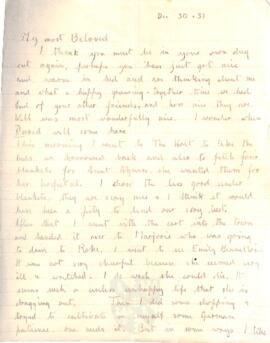 Dec 30 - 31
My most Beloved
I think you must be in your own dug
out again, perhaps you have just got nice
and warm in bed and are thinking about me
and what a happy growing-together time we had
and of your other friends, and how nice they are.
Will was most wonderfully nice. I wonder when
David will come here
This morning I went to The Holt to take the
beds we borrowed back and also to fetch four
blankets for Great Alguern she wanted them for
her hospital. I chose the less good under
blankets, they are very nice & I think it would
have been a pity to lend our very best.
After that I went with the cart into the town
and handed it over to Marjorie who was going
to dine to Stoke. I went to see Emily
It was not very cheerful because she seemed very
ill & wretched. I do wish she could die. It
seems such a useless unhappy life that she is
dragging out. Then I did some shopping &
longed to cultivate in myself some German
patience one needs it. But in some ways I like